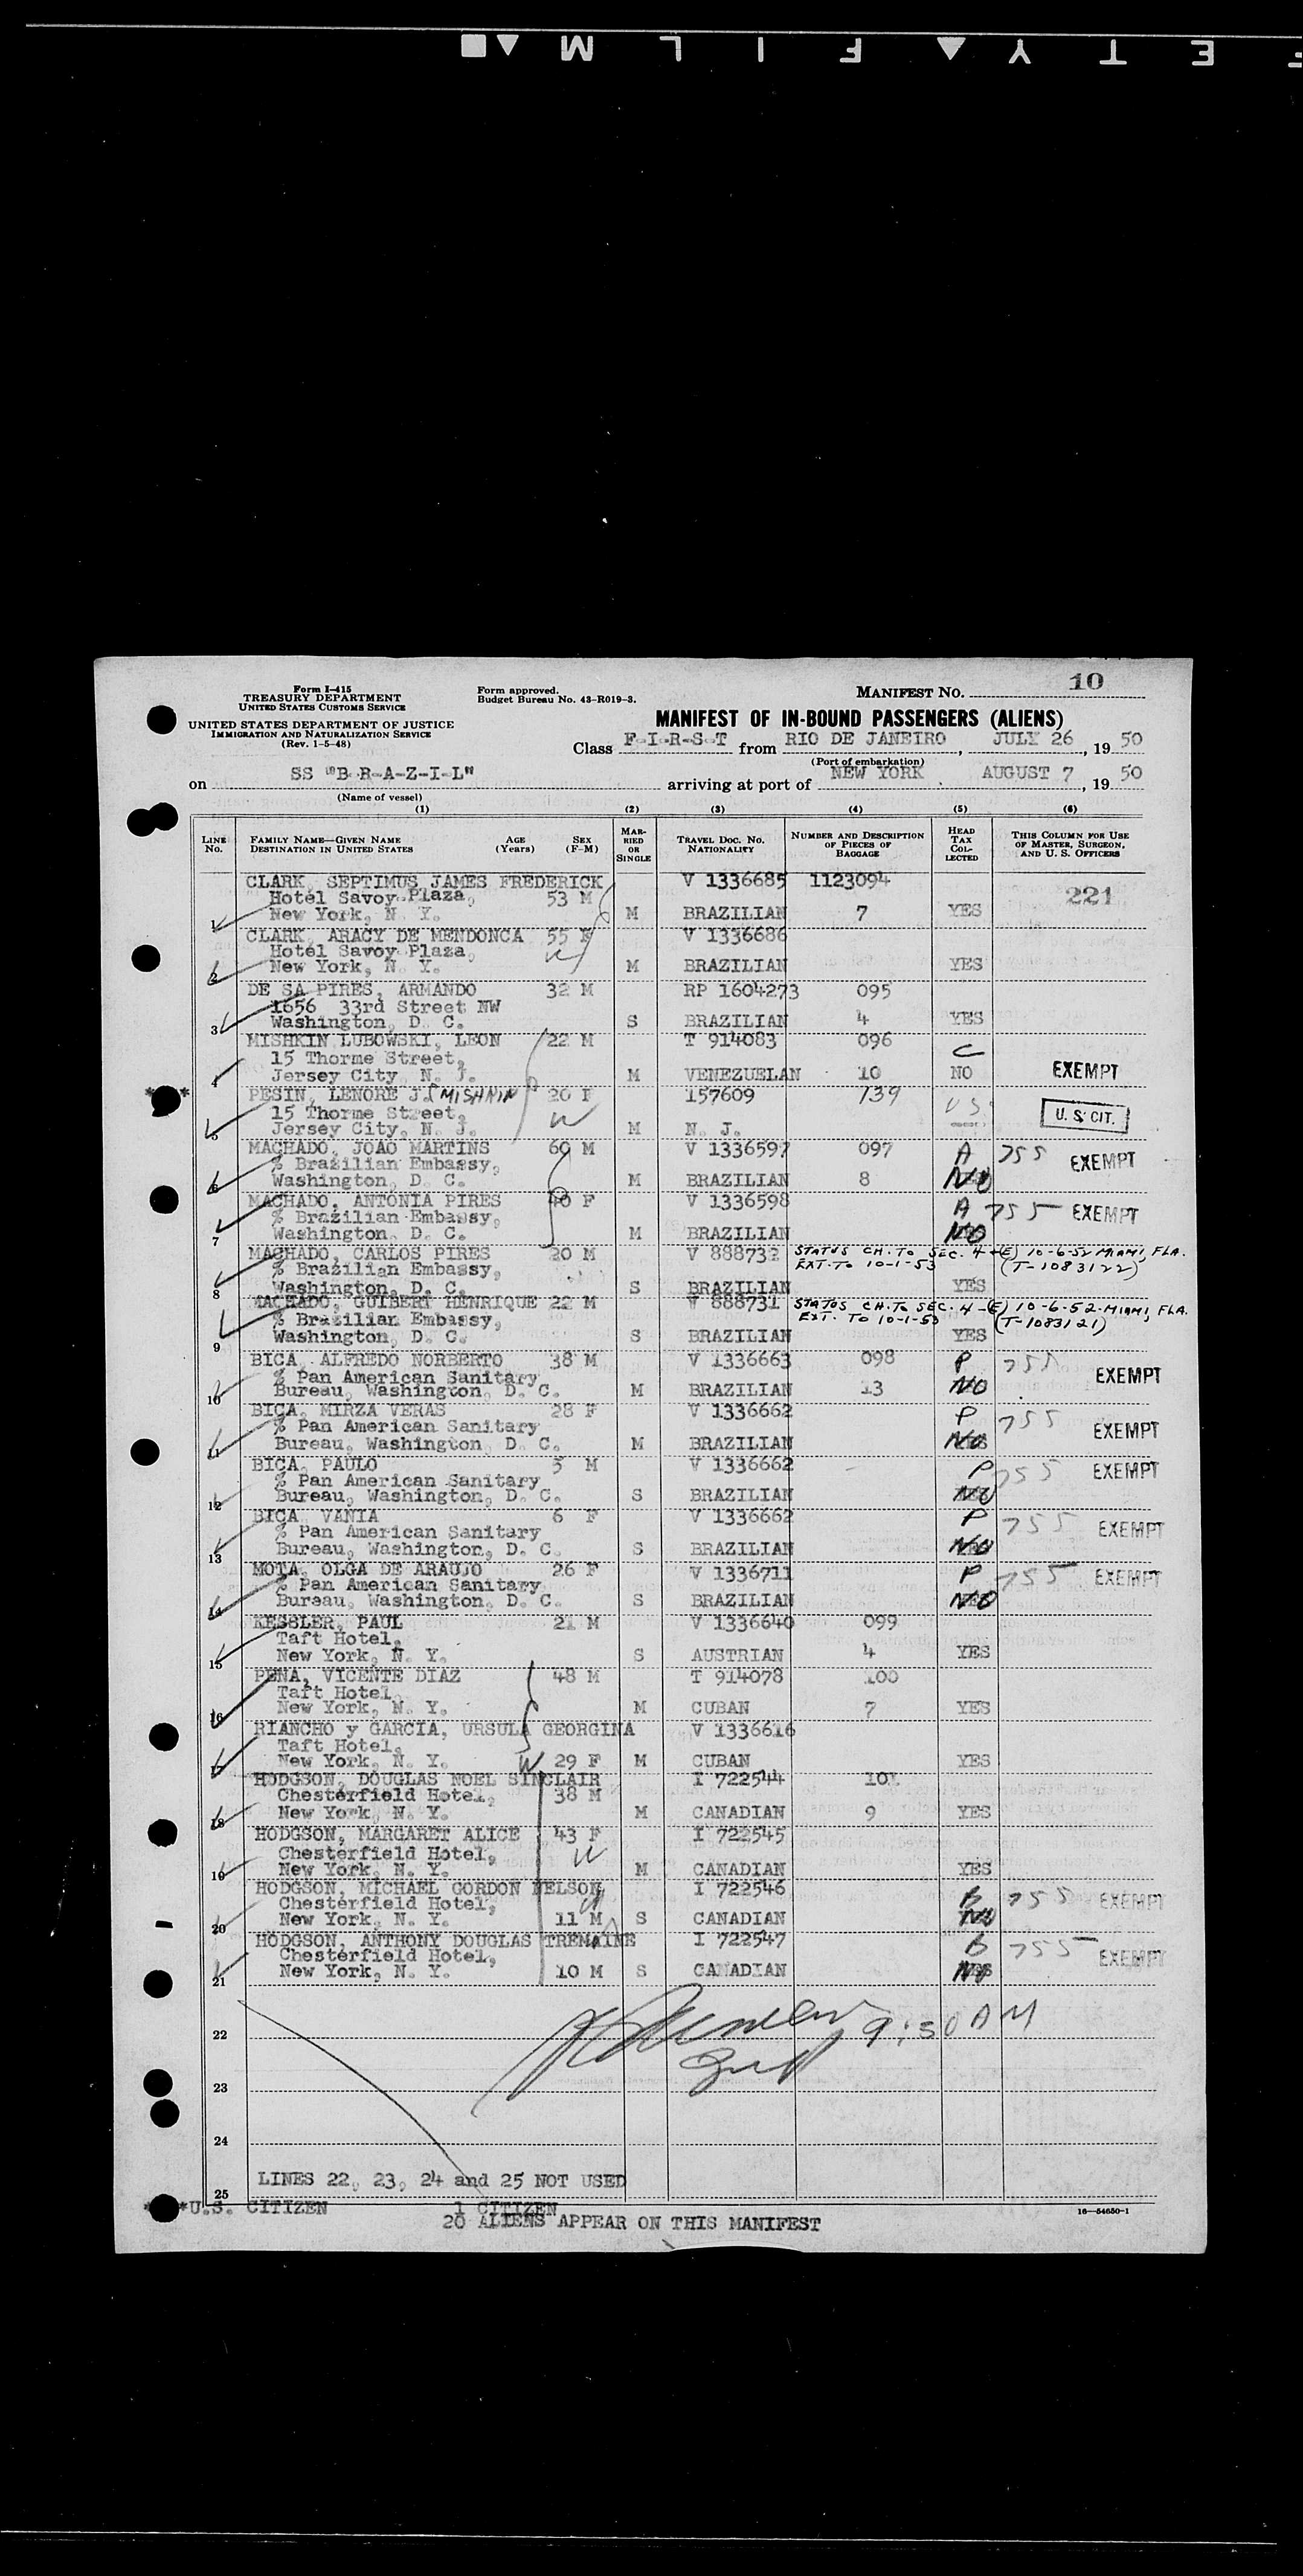 E T Y ▲ F I L M ▲ ■
10
Form I-415
TREASURY DEPARTMENT
UNITED STATES CUSTOMS SERVICE
Form approved.
Budget Bureau No. 43-R019-3.
MANIFEST NO.
UNITED STATES DEPARTMENT OF JUSTICE
IMMIGRATION AND NATURALIZATION SERVICE
(Rev. 1-5-48)
MANIFEST OF IN-BOUND PASSENGERS (ALIENS)
Class F-I-R-S-T from RIO DE JANEIRO, JULY 26, 19 50
(Port of embarkation)
on SS "B-R-A-Z-I-L" arriving at port of NEW YORK AUGUST 7, 19 50
(Name of vessel)
(1) (2) (3) (4) (5) (6)
LINE No. FAMILY NAME—GIVEN NAME DESTINATION IN UNITED STATES AGE (Years) SEX (F-M) MARRIED OR SINGLE TRAVEL DOC. NO. NATIONALITY NUMBER AND DESCRIPTION OF PIECES OF BAGGAGE HEAD TAX COLLECTED THIS COLUMN FOR USE OF MASTER, SURGEON, AND U. S. OFFICERS
CLARK, SEPTIMUS JAMES FREDERICK V 1336685 1123094
Hotel Savoy-Plaza, 53 M 221
1 New York, N. Y. M BRAZILIAN 7 YES
CLARK, ARACY DE MENDONCA 55 F V 1336686
Hotel Savoy-Plaza, W
2 New York, N. Y. M BRAZILIAN YES
DE SA PIRES, ARMANDO 32 M RP 1604273 095
1656 33rd Street NW
3 Washington, D. C. S BRAZILIAN 4 YES
MISHKIN LUBOWSKI, LEON 22 M T 914083 096
15 Thorme Street, C
4 Jersey City, N. J. M VENEZUELAN 10 NO EXEMPT
PESIN, LENORE J. 20 F 157609 739 US
15 Thorme Street, W U. S. CIT.
5 Jersey City, N. J. M N. J.
MACHADO, JOAO MARTINS 60 M V 1336597 097 A 755 EXEMPT
% Brazilian Embassy,
6 Washington, D. C. M BRAZILIAN 8 NO
MACHADO, ANTONIA PIRES 40 F V 1336598 A 755 EXEMPT
% Brazilian Embassy,
7 Washington, D. C. M BRAZILIAN NO
MACHADO, CARLOS PIRES 20 M V 888732 STATUS CH. TO SEC. 4-(E) 10-6-52 MIAMI, FLA.
% Brazilian Embassy, EXT. TO 10-1-53 (T-1083122)
8 Washington, D. C. S BRAZILIAN YES
MACHADO, GUIBERT HENRIQUE 22 M V 888731 STATUS CH. TO SEC. 4-(E) 10-6-52-MIAMI, FLA.
% Brazilian Embassy, EXT. TO 10-1-53 (T-1083121)
9 Washington, D. C. S BRAZILIAN YES
BICA, ALFREDO NORBERTO 38 M V 1336663 098 P 755 EXEMPT
% Pan American Sanitary
10 Bureau, Washington, D. C. M BRAZILIAN 13 NO
BICA, MIRZA VERAS 28 F V 1336662 P 755 EXEMPT
% Pan American Sanitary
11 Bureau, Washington, D. C. M BRAZILIAN NO
BICA, PAULO 5 M V 1336662 P 755 EXEMPT
% Pan American Sanitary
12 Bureau, Washington, D. C. S BRAZILIAN NO
BICA, VANIA 6 F V 1336662 P 755 EXEMPT
% Pan American Sanitary
13 Bureau, Washington, D. C. S BRAZILIAN NO
MOTA, OLGA DE ARAUJO 26 F V 1336711 P 755 EXEMPT
% Pan American Sanitary
14 Bureau, Washington, D. C. S BRAZILIAN NO
KESSLER, PAUL 21 M V 1336640 099
Taft Hotel,
15 New York, N. Y. S AUSTRIAN 4 YES
PENA, VICENTE DIAZ 48 M T 914078 100
Taft Hotel,
16 New York, N. Y. M CUBAN 7 YES
RIANCHO y GARCIA, URSULA GEORGINA V 1336616
Taft Hotel,
17 New York, N. Y. W 29 F M CUBAN YES
HODGSON, DOUGLAS NOEL SINCLAIR I 722544 101
Chesterfield Hotel, 38 M
18 New York, N. Y. M CANADIAN 9 YES
HODGSON, MARGARET ALICE 43 F I 722545
Chesterfield Hotel, W
19 New York, N. Y. M CANADIAN YES
HODGSON, MICHAEL GORDON NELSON I 722546 B 755 EXEMPT
Chesterfield Hotel,
20 New York, N. Y. 11 M S CANADIAN NO
HODGSON, ANTHONY DOUGLAS TREMAINE I 722547 B 755 EXEMPT
Chesterfield Hotel,
21 New York, N. Y. 10 M S CANADIAN
22 9:30 AM
23
24
LINES 22, 23, 24 and 25 NOT USED
25
**U.S. CITIZEN 1 CITIZEN 16—54650-1
20 ALIENS APPEAR ON THIS MANIFEST